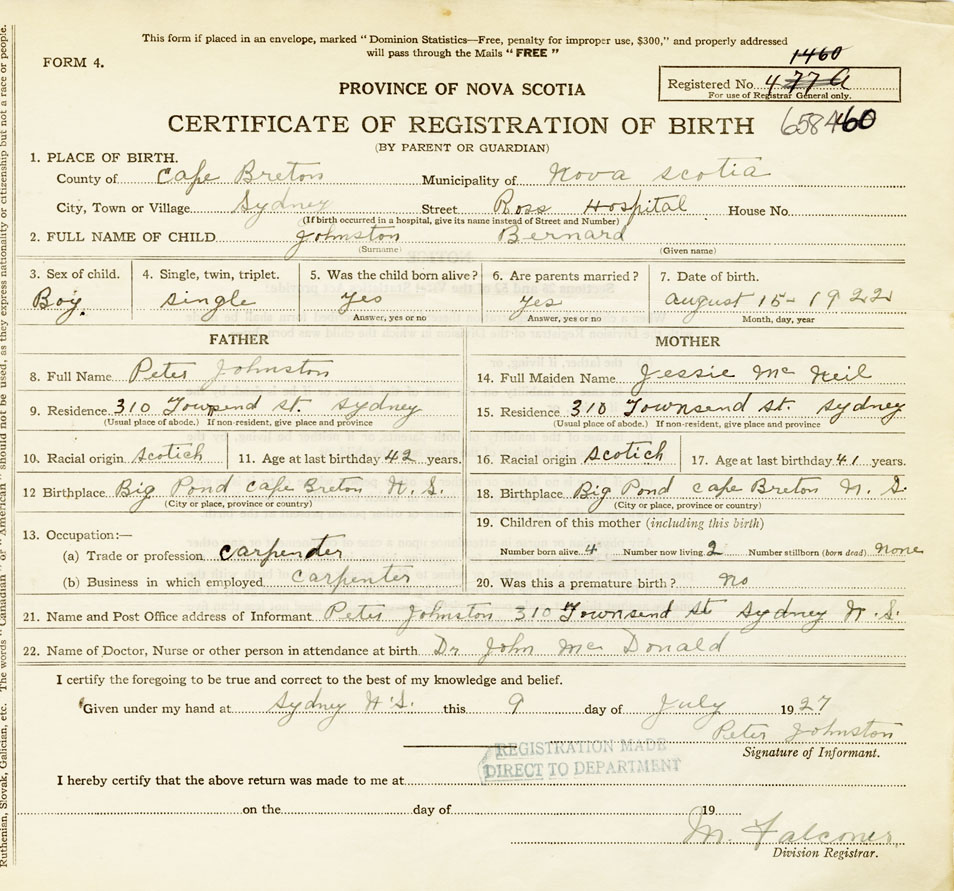 This form if placed in an envelope, marked "Dominion Statistics—Free, penalty for improper use, $300," and properly addressed
will pass through the Mails "FREE"
FORM 4.
1460
PROVINCE OF NOVA SCOTIA
Registered No. 477a
For use of Registrar General only.
CERTIFICATE OF REGISTRATION OF BIRTH
(BY PARENT OR GUARDIAN)
1. PLACE OF BIRTH.
County of Cape Breton Municipality of Nova scotia
City, Town or Village Sydney Street Ross Hospital House No.
(If birth occurred in a hospital, give its name instead of Street and Number)
2. FULL NAME OF CHILD Johnston Bernard
(Surname) (Given name)
3. Sex of child. 4. Single, twin, triplet. 5. Was the child born alive? 6. Are parents married? 7. Date of birth.
Boy. single yes yes august 15 - 1922
Answer, yes or no Answer, yes or no Month, day, year
FATHER MOTHER
8. Full Name Peter Johnston 14. Full Maiden Name Jessie Mc Neil
9. Residence 310 Townsend st. sydney 15. Residence 310 Townsend st. sydney
(Usual place of abode.) If non-resident, give place and province (Usual place of abode.) If non-resident, give place and province
10. Racial origin scotich 11. Age at last birthday 42 years. 16. Racial origin scotich 17. Age at last birthday 41 years.
12 Birthplace Big Pond cape Breton N. S. 18. Birthplace Big Pond cape Breton N. S.
(City or place, province or country) (City or place, province or country)
13. Occupation:— 19. Children of this mother (including this birth)
(a) Trade or profession carpenter Number born alive 4 Number now living 2 Number stillborn (born dead) none
(b) Business in which employed carpenter 20. Was this a premature birth? no
21. Name and Post Office address of Informant Peter Johnston 310 Townsend st sydney N. S.
22. Name of Doctor, Nurse or other person in attendance at birth Dr John Mc Donald
I certify the foregoing to be true and correct to the best of my knowledge and belief.
Given under my hand at sydney N.S. this 9 day of July 1927
Peter Johnston
Signature of Informant.
REGISTRATION MADE
DIRECT TO DEPARTMENT
I hereby certify that the above return was made to me at
on the day of 19
M. Falconer
Division Registrar.
Ruthenian, Slovak, Galician, etc. The words "Canadian" or "American" should not be used, as they express nationality or citizenship but not a race or people.